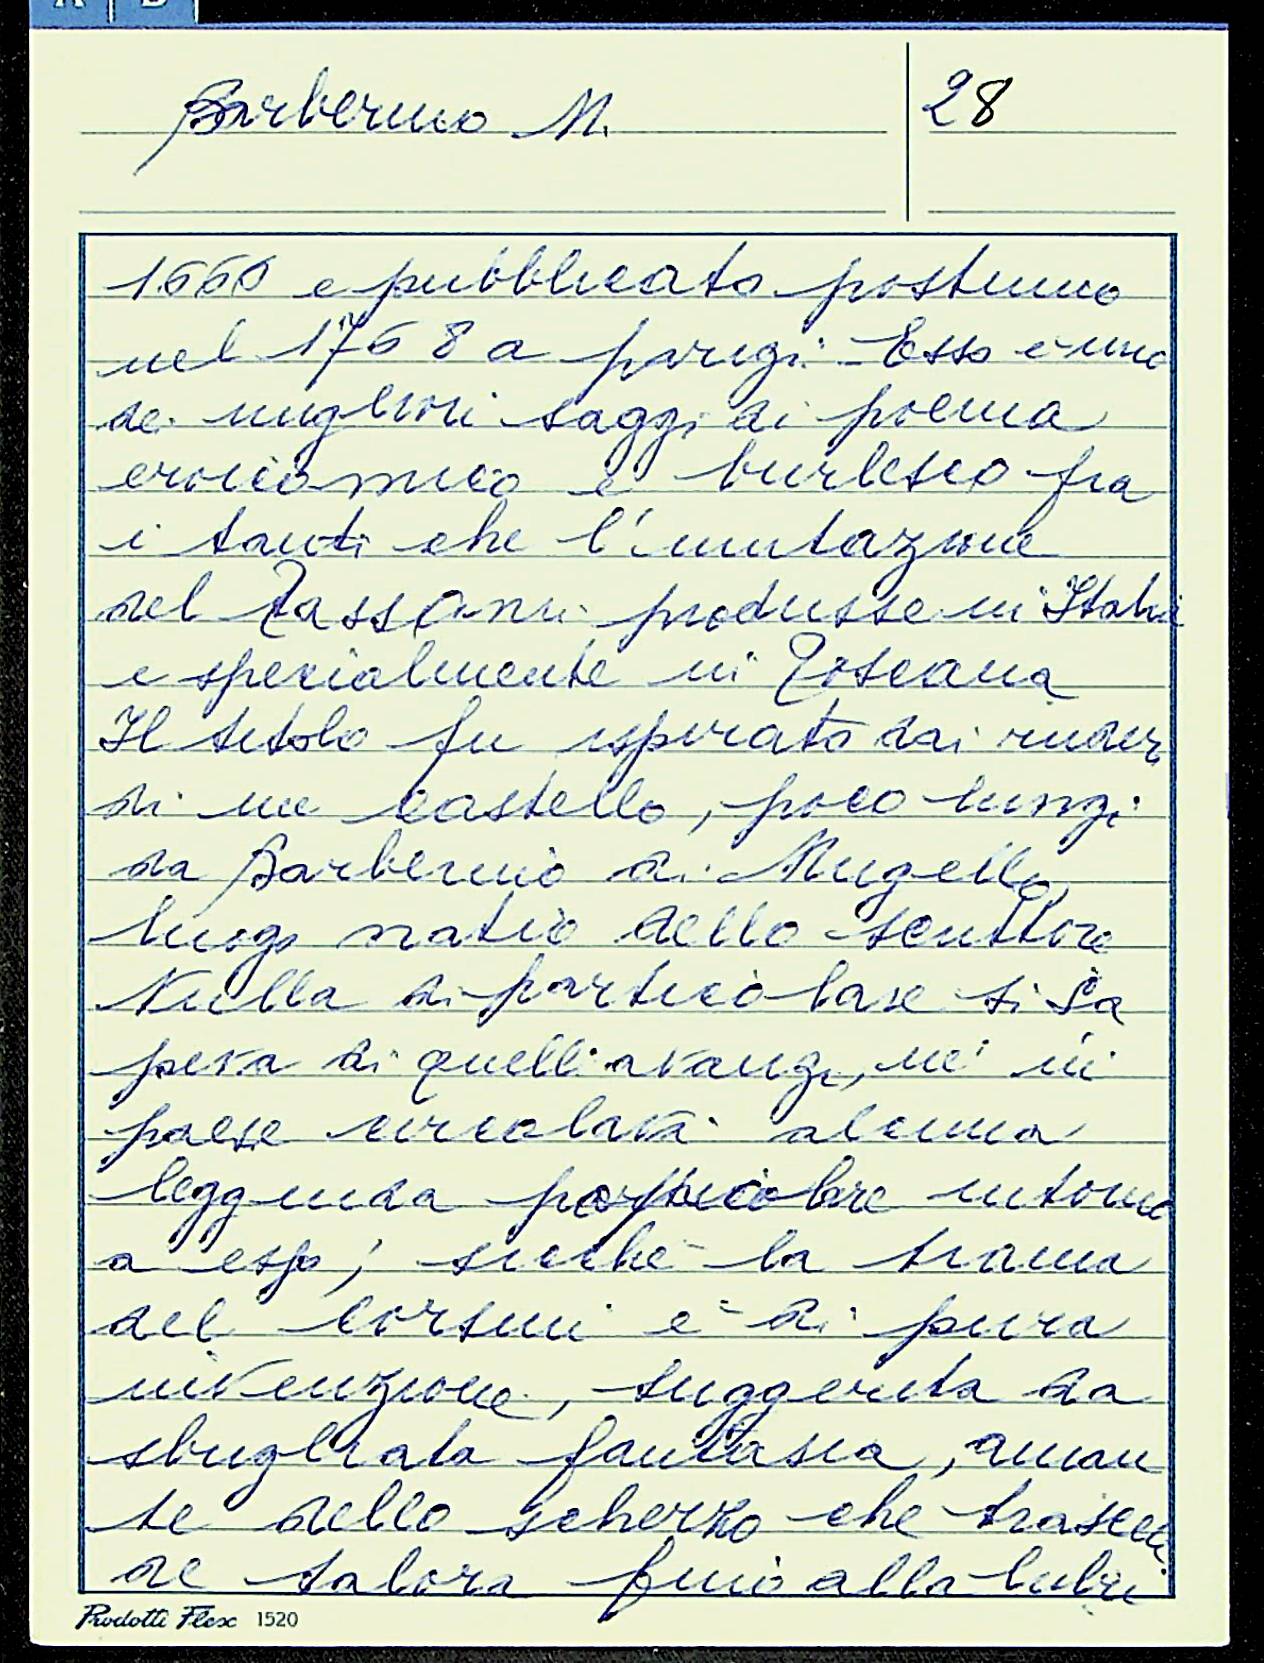 A B
Barberino M. 28
1660 e pubblicato postumo
nel 1768 a parigi. Esso è uno
dei migliori saggi di poema
eroicomico e burlesco fra
i tanti che l'imitazione
del Tassoni produsse in Italia
e specialmente in Toscana
Il titolo fu ispirato dai ruderi
di un castello, poco lungi
da Barberino di Mugello,
luogo natio dello scrittore
Nulla di particolare si sa
peva di quelli avanzi, né in
paese circolava alcuna
leggenda particolare intorno
a esso; sicché la trama
del Corsini è di pura
invenzione, suggerita da
sbrigliata fantasia, aman
te dello scherzo che trascen
de talora fino alla lubri
Prodotti Flex 1520